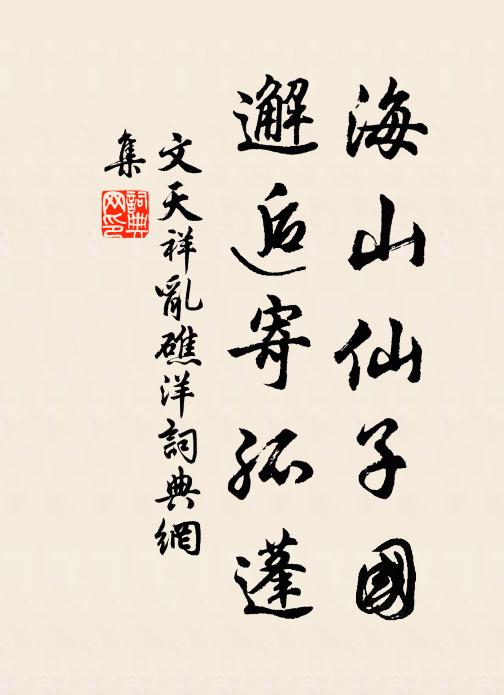 海山仙子國
邂逅寄孤蓬
文天祥亂礁洋詞典網
集
詞典
网印